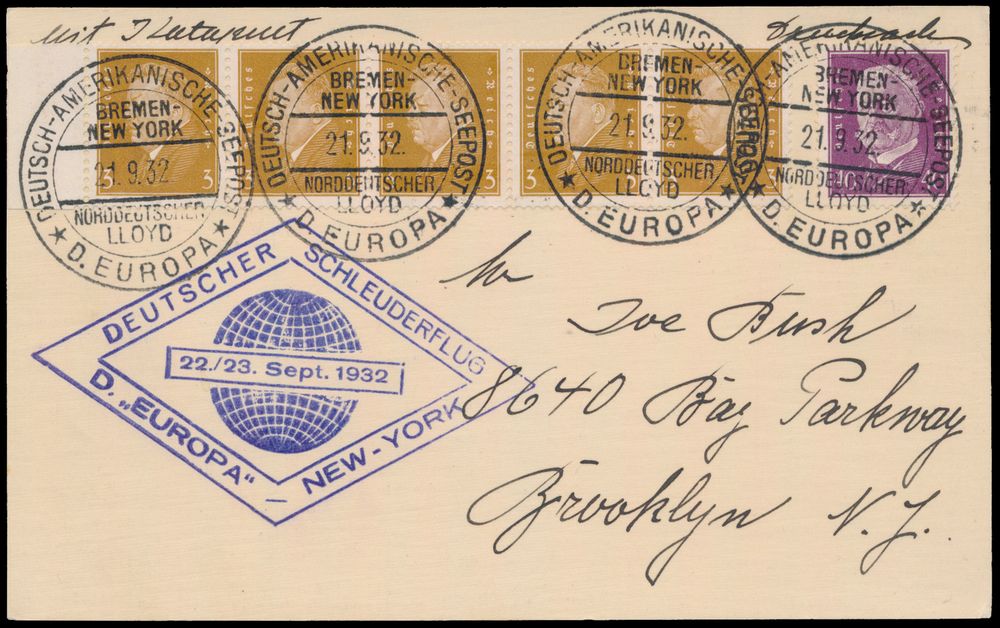 mit Katapult Drucksache
DEUTSCH-AMERIKANISCHE-SEEPOST
BREMEN-
NEW YORK
21.9.32
NORDDEUTSCHER
LLOYD
★ D. EUROPA ★
3
DEUTSCH-AMERIKANISCHE-SEEPOST
BREMEN-
NEW YORK
21.9.32.
NORDDEUTSCHER
LLOYD
★ D. EUROPA ★
3 3
DEUTSCH-AMERIKANISCHE-SEEPOST
BREMEN-
NEW YORK
21.9.32.
NORDDEUTSCHER
LLOYD
★ D. EUROPA ★
Deutsches Reich
3
DEUTSCH-AMERIKANISCHE-SEEPOST
BREMEN-
NEW YORK
21.9.32
NORDDEUTSCHER
LLOYD
★ D. EUROPA ★
DEUTSCHER SCHLEUDERFLUG
22./23. Sept. 1932
D. „EUROPA“ – NEW-YORK
Mr
Joe Bush
8640 Bay Parkway
Brooklyn N. J.